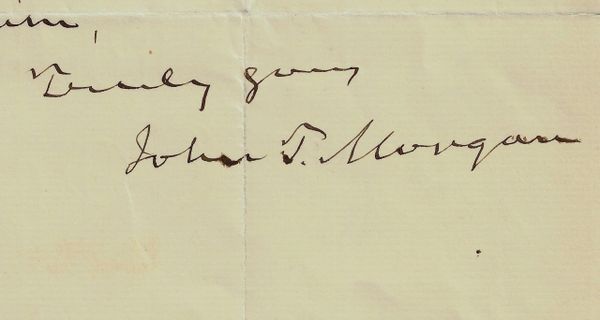 him,
Truly yours
John T. Morgan